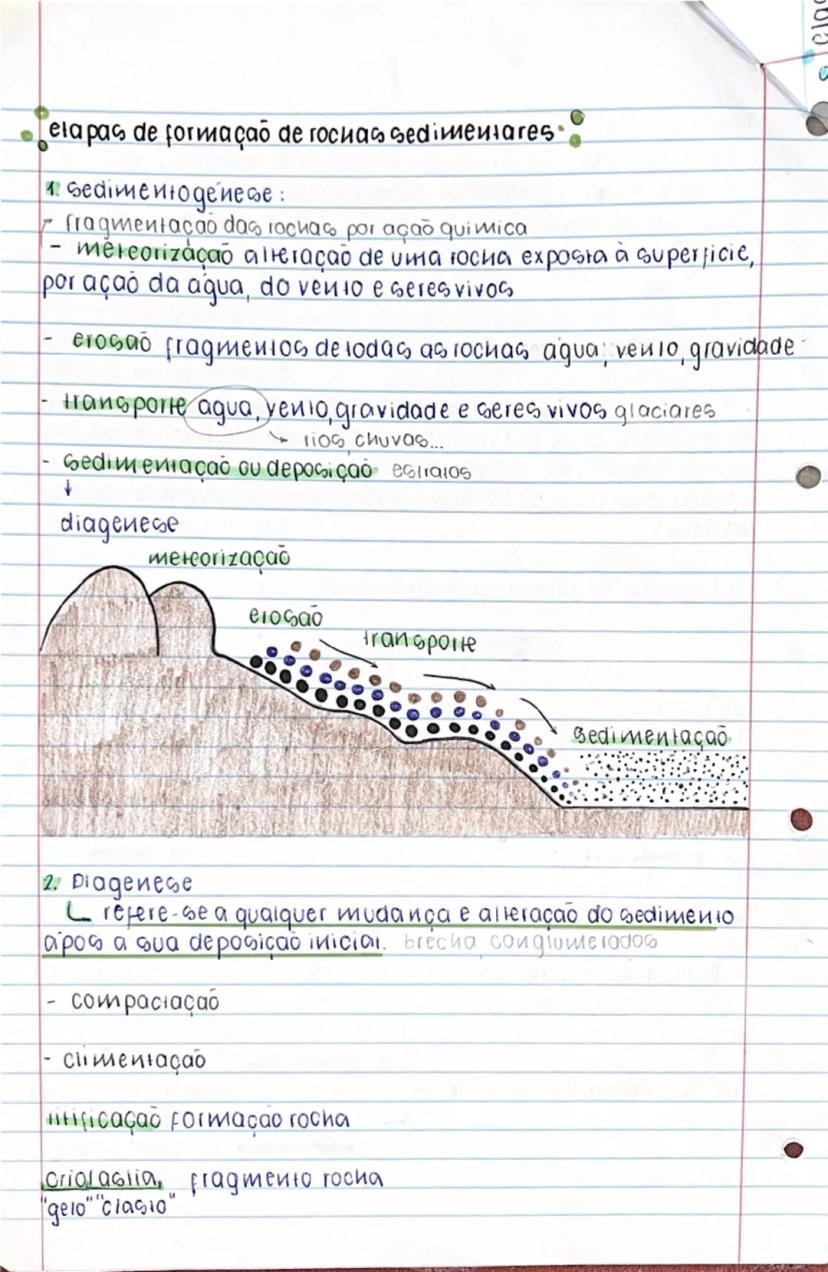 clas
etapas de formação de rochas sedimentares.
1. sedimentogénese:
fragmentação das rochas por ação quimica
- meteorização alteração de uma rocha exposta à superfície,
por ação da água, do vento e seres vivos
- erosão fragmentos de todas as rochas água, vento, gravidade
- transporte água, vento, gravidade e seres vivos glaciares
rios, chuvas...
- sedimentação ou deposição estratos
↓
diagenese
meteorização
erosão
transporte
sedimentação
2. Diagenese
refere-se a qualquer mudança e alteração do sedimento
após a sua deposição inicial. brecha, conglomerados
- compactação
- cimentação
litificação formação rocha
crioclastia, fragmento rocha
"gelo" "clasto"